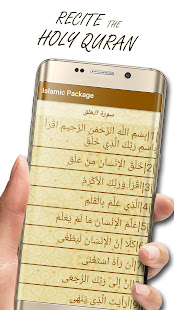 RECITE THE
HOLY QURAN
Islamic Package
سورة العلق
1|بِسْمِ اللَّهِ الرَّحْمَنِ الرَّحِيمِ اقْرَأْ
بِاسْمِ رَبِّكَ الَّذِي خَلَقَ
2|خَلَقَ الْإِنسَانَ مِنْ عَلَقٍ
3|اقْرَأْ وَرَبُّكَ الْأَكْرَمُ
4|الَّذِي عَلَّمَ بِالْقَلَمِ
5|عَلَّمَ الْإِنسَانَ مَا لَمْ يَعْلَمْ
6|كَلَّا إِنَّ الْإِنسَانَ لَيَطْغَى
7|أَن رَّآهُ اسْتَغْنَى
8|إِنَّ إِلَى رَبِّكَ الرُّجْعَى
9|أَرَأَيْتَ الَّذِي يَنْهَى